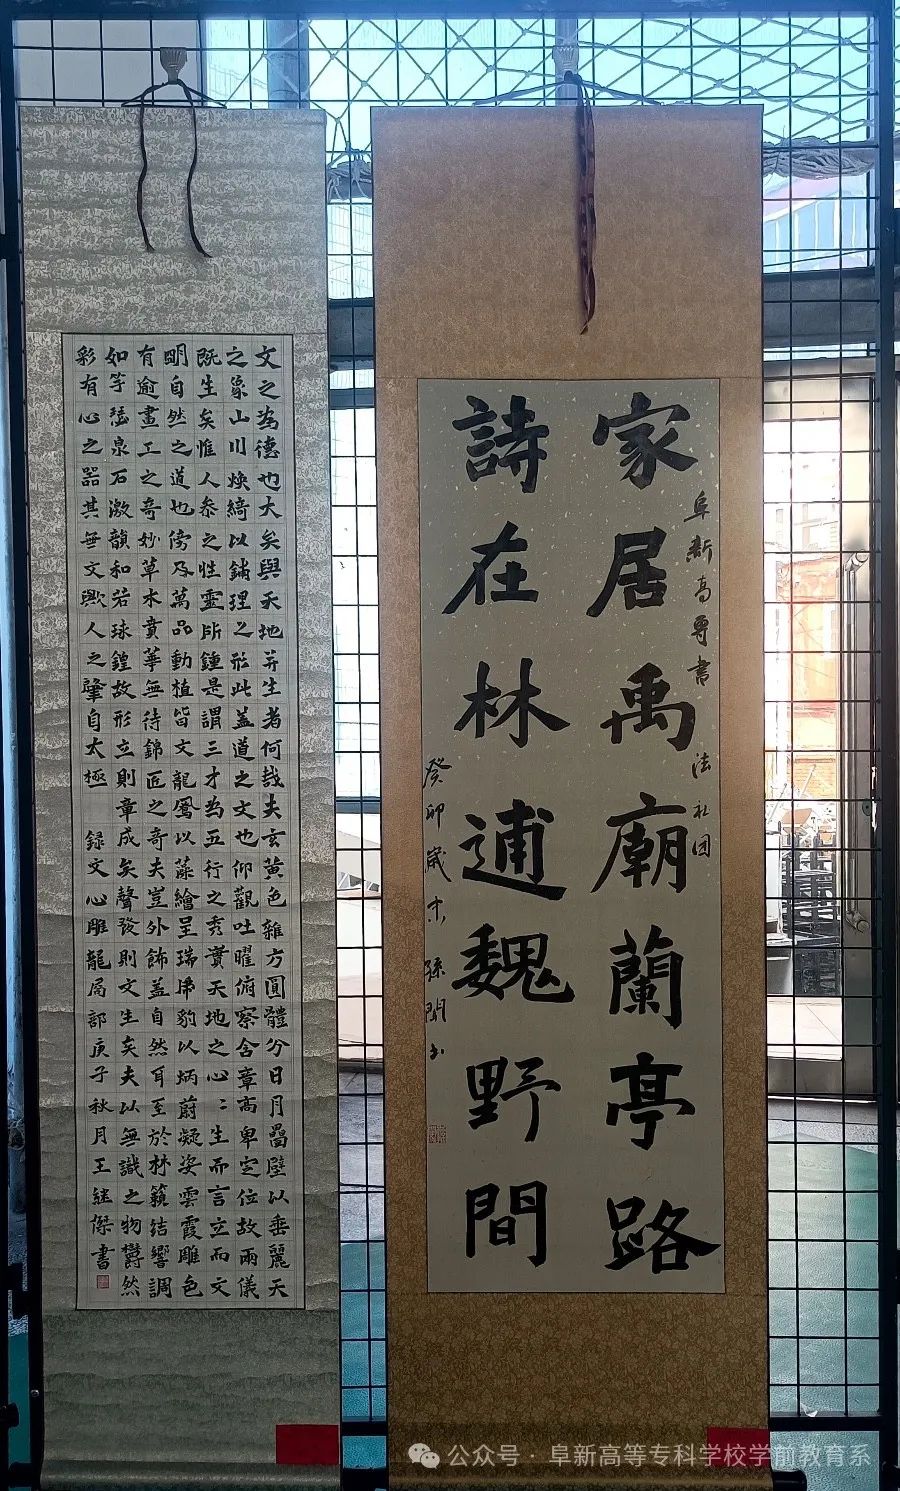 阜新高專書法社团
家居禹廟蘭亭路
詩在林逋魏野間
癸卯歲末 孫
文之為德也大矣與天地并生者何哉夫玄黄色雜方圓體分日月疊璧以垂麗天
之象山川煥綺以鋪理之形此蓋道之文也仰觀吐曜俯察含章高卑定位故兩儀
既生矣惟人叅之性靈所鍾是謂三才為五行之秀實天地之心〻生而言立而文
明自然之道也傍及萬品動植皆文龍鳳以藻繪呈瑞虎豹以炳蔚凝姿雲霞雕色
有逾畫工之奇妙草木賁華無待錦匠之奇夫豈外飾蓋自然耳至於林籟結響調
如竽瑟泉石激韻和若球鍠故形立則章成矣聲發則文生矣夫以無識之物鬱然
彩有心之器其無文歟人之肇自太極 録文心雕龍局部庚子秋月王継傑書
公众号·阜新高等专科学校学前教育系